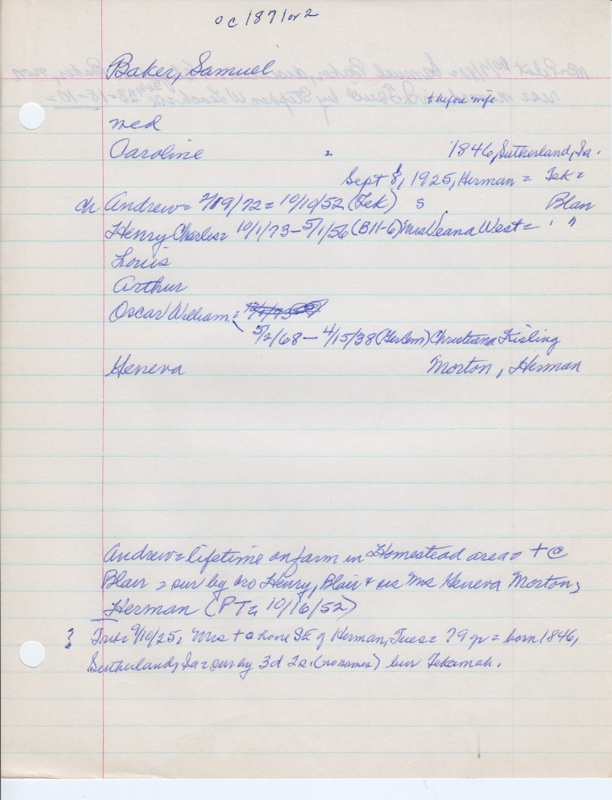 oc 1871 or 2
Baker, Samuel
+ before wife
ned
Caroline = 1846, Sutherland, Ia.
Sept 8, 1925, Herman = Tek =
ch Andrew = 7/19/72 = 10/10/52 (Tek) S. Blair
Henry Charles = 10/1/73 - 5/1/56 (B11-6) Miss Veana West = " "
Louis
Arthur
Oscar William =
5/2/68 - 4/15/38 (Herlem) Christiana Kisling
Geneva Morton, Herman
Andrew = lifetime on farm in Homestead area = + C
Blair = sur by bro Henry, Blair + sis Mrs Geneva Morton,
Herman (PT = 10/16/52)
? Trib = 9/10/25, Mrs + @ home SE of Herman, Tues = 79 yr = born 1846,
Sutherland, Ia = sur by 3d 2s (no names) bur Tekamah.